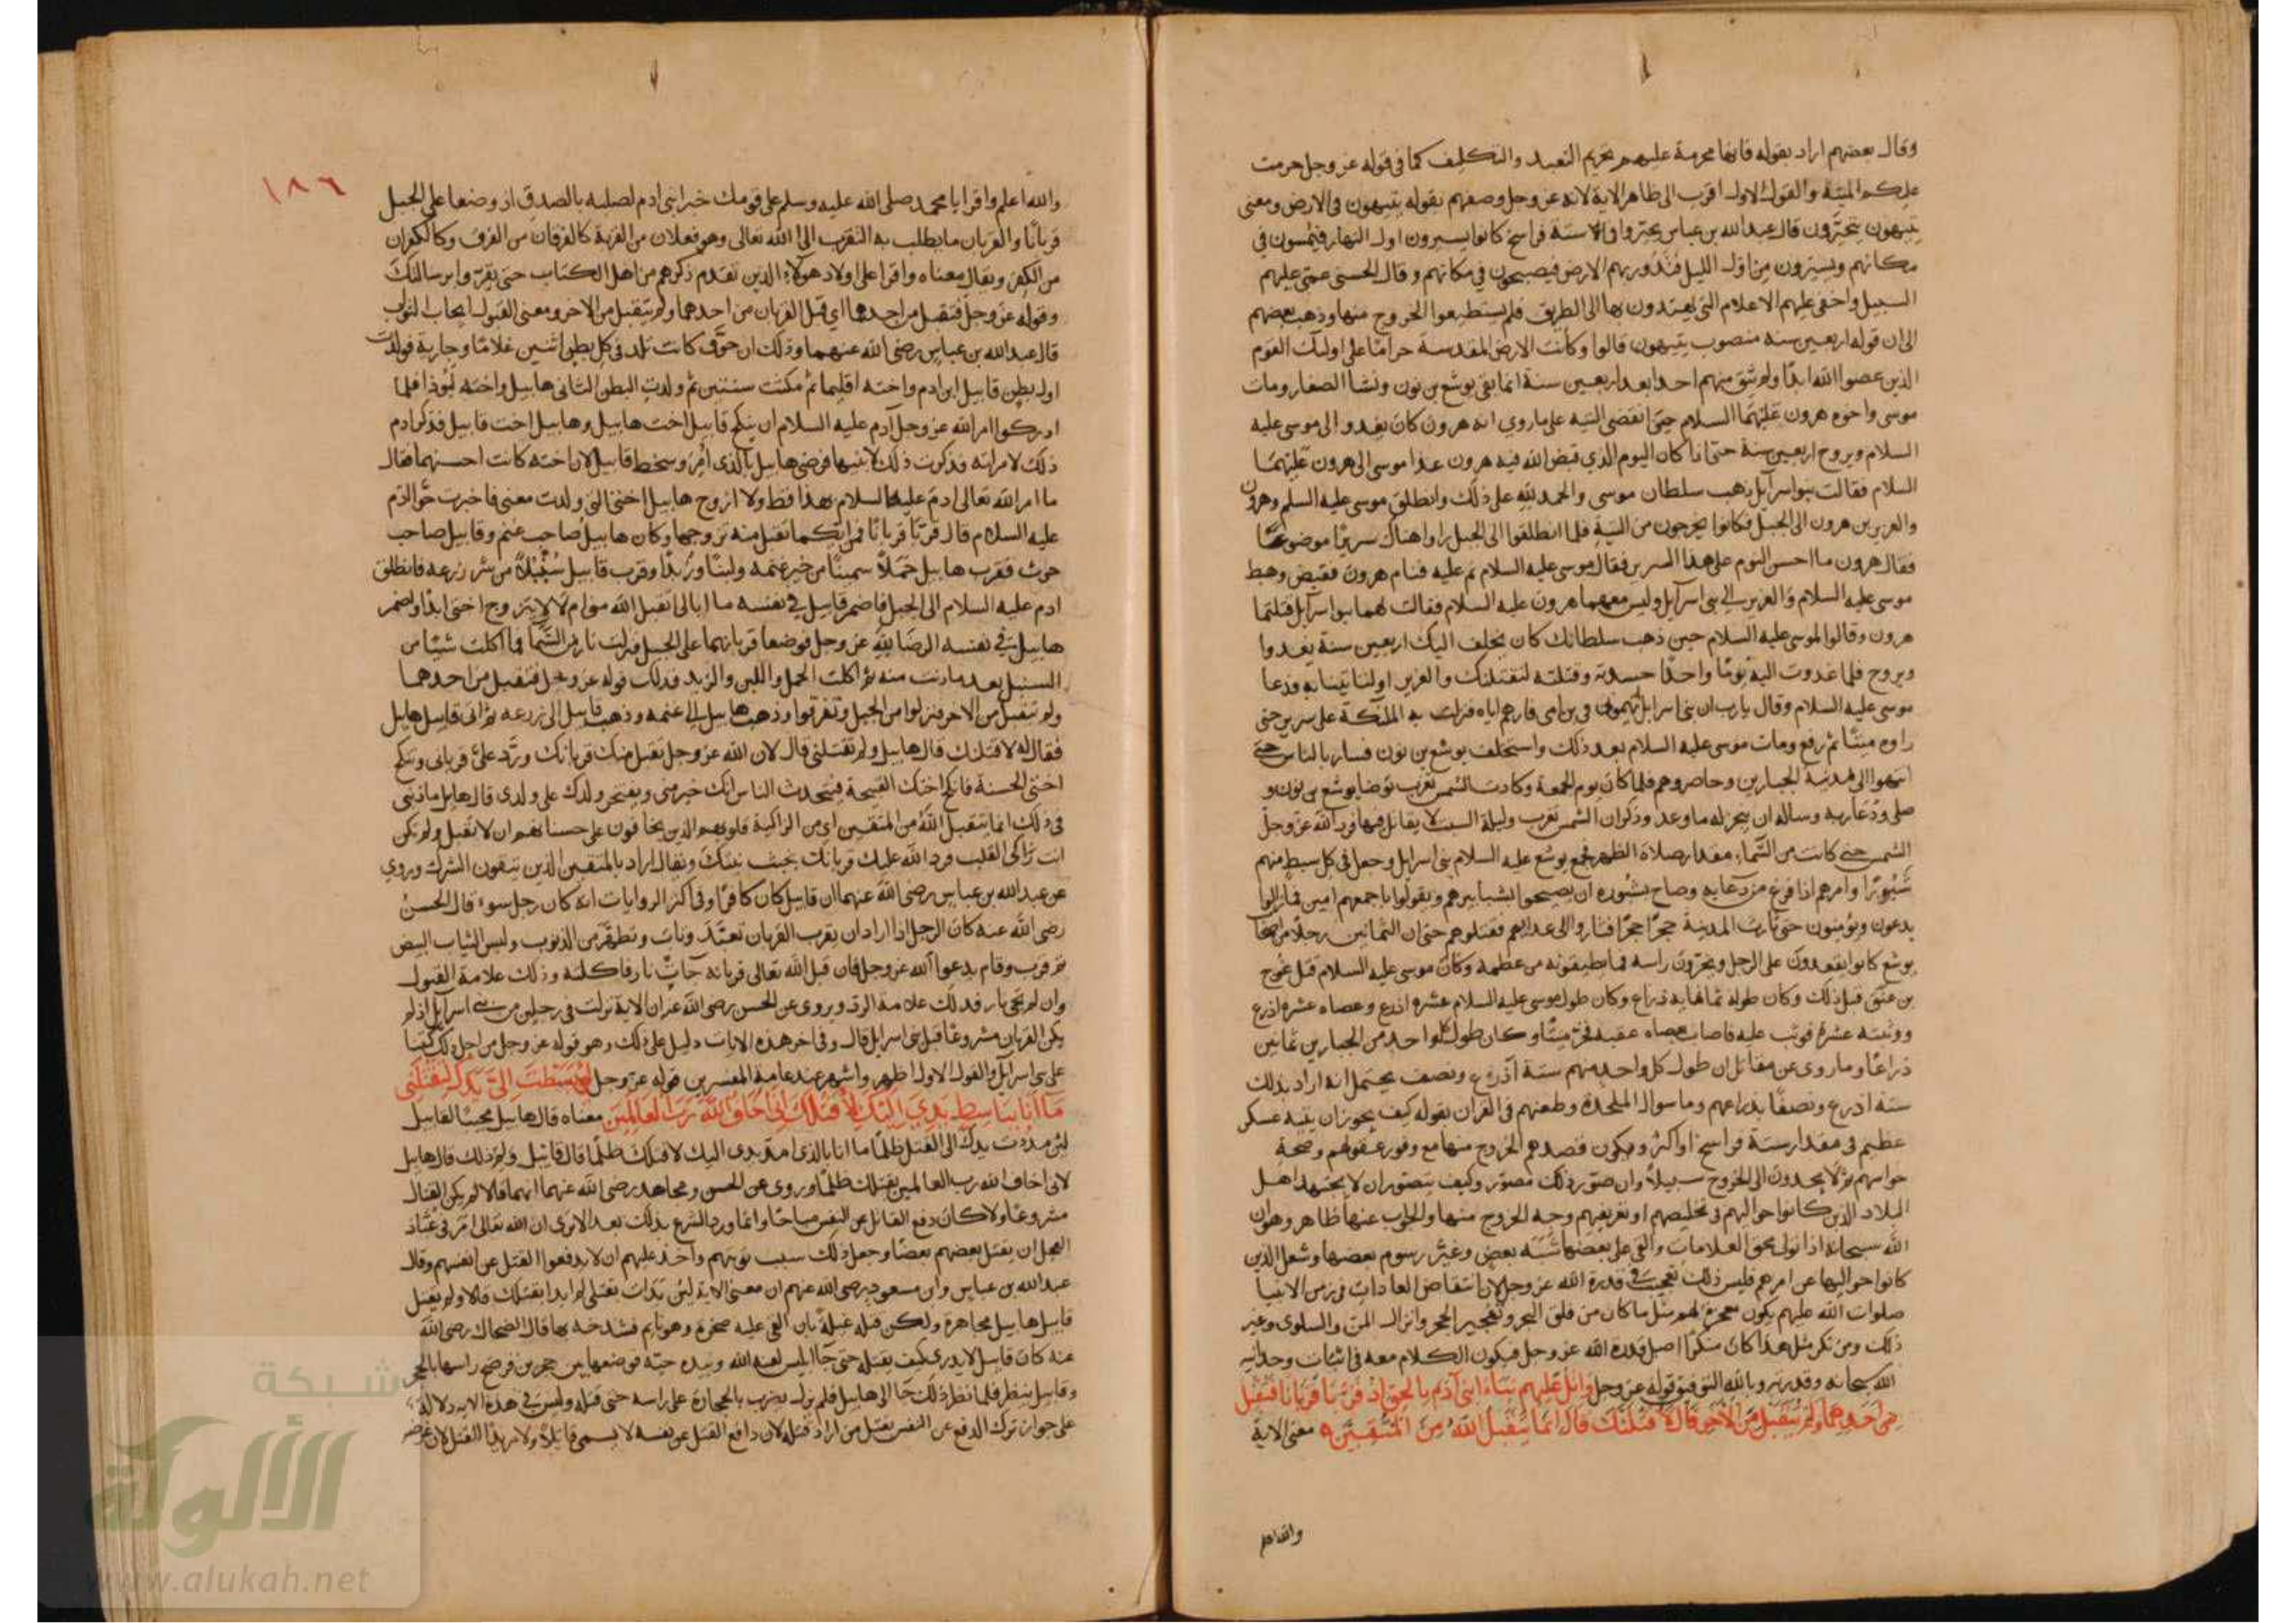 وقال بعضهم اراد بقوله فانها محرمة عليهم تحريم التعبد والتكليف كما في قوله عز وجل حرمت
عليكم الميتة والقول الاول اقرب الى ظاهر الاية لانه عز وجل وصفهم بقوله يتيهون في الارض ومعنى
يتيهون يتحيرون قال عبد الله بن عباس تحيروا في ستة فراسخ كانوا يسيرون اول النهار فيمسون في
مكانهم ويسيرون من اول الليل فتدور بهم الارض فيصبحون في مكانهم وقال الحسن عمي عليهم
السبيل واخفى عليهم الاعلام التي يهتدون بها الى الطريق فلم يستطيعوا الخروج منها وذهب بعضهم
الى ان قوله اربعين سنة منصوب بيتيهون قالوا وكانت الارض المقدسة حراما على اوليك القوم
الذين عصوا الله ابدا ولم يبق منهم احد بعد اربعين سنة انما بقي يوشع بن نون ونشا الصغار ومات
موسى واخوه هرون عليهما السلام حتى انقضى التيه على ما روي انه هرون كان يغدو الى موسى عليه
السلام ويروح اربعين سنة حتى اذا كان اليوم الذي قبض الله فيه هرون غدا موسى الى هرون عليهما
السلام فقالت بنوا اسرآيل ذهب سلطان موسى والحمد لله على ذلك وانطلق موسى عليه السلم وهرون
والعزير بن هرون الى الجبل فكانوا يخرجون من التيه فلما انطلقوا الى الجبل راوا هناك سريرا موضوعا
فقال هرون ما احسن النوم على هذا السرير فقال موسى عليه السلام نم عليه فنام هرون فقبض وهبط
موسى عليه السلام والعزير الى بني اسرآيل وليس معهما هرون عليه السلام فقالت لهما بنوا اسرآيل قتلتما
هرون وقالوا لموسى عليه السلام حين ذهب سلطانك كان يختلف اليك اربعين سنة يغدوا
ويروح فلما غدوت اليه يوما واحدا حسدته وقتلته لنقتلنك والعزير او لتاتينا به فدعا
موسى عليه السلام وقال يا رب ان بني اسرايل اتهموني في بن امي فارهم اياه فنزلت به الملئكة على سرير حتى
راوه ميتا ثم رفع ومات موسى عليه السلام بعد ذلك واستخلف يوشع بن نون فسار بالناس حتى
انتهوا الى مدينة الجبارين وحاصروهم فلما كان يوم الجمعة وكادت الشمس تغرب توضا يوشع بن نون و
صلى ودعا ربه وساله ان ينجز له ما وعد وذكر ان الشمس تغرب وليلة السبت لا يقاتل فيها فرد الله عز وجل
الشمس حتى كانت من السماء مقدار صلاة الظهر فجمع يوشع عليه السلام بني اسرايل وجعل في كل سبط منهم
شبورا وامرهم اذا فرغ من دعايه وصاح بشبوره ان يصيحوا بشبابيرهم ويقولوا باجمعهم امين فما زالوا
يدعون ويؤمنون حتى تناثرت المدينة حجرا حجرا فثاروا الى عدايهم فقتلوهم حتى ان الثمانين رجلا من اصحاب
يوشع كانوا يقعدون على الرجل ويحزون راسه فما يطيقونه من عظمه وكان موسى عليه السلام قتل عوج
بن عنق قبل ذلك وكان طوله ثمانماية ذراع وكان طول موسى عليه السلام عشرة اذرع وعصاه عشرة اذرع
ووثبته عشرة فوثب عليه فاصاب بعصاه عقبه فخر ميتا وكان طول كل واحد من الجبارين ثمانين
ذراعا وما روى عن مقاتل ان طول كل واحد منهم ستة آذرع ونصف يحتمل انه اراد بذلك
ستة اذرع ونصفا بذراعهم وما سوال الملحدة وطعنهم في القران بقوله كيف يجوز ان يتيه عسكر
عظيم في مقدار ستة فراسخ او اكثر ويكون قصدهم الخروج منها مع وفور عقولهم وصحة
حواسهم ثم لا يجدون الى الخروج سبيلا وان صور ذلك مصور وكيف يتصور ان لا يجتهد اهل
البلاد الذين كانوا حواليهم في تخليصهم او تعريفهم وجه الخروج منها والجواب عنها ظاهر وهو ان
الله سبحانه اذا تولى محق العلامات والقى على بعضها شبه بعض وغير رسوم بعضها وشغل الذين
كانوا حواليها عن امرهم فليس ذلك بعجيب في قدرة الله عز وجل لان انتقاض العادات في زمن الانبيا
صلوات الله عليهم يكون معجزة لهم مثل ما كان من فلق البحر وتفجير الحجر وانزال المن والسلوى وغير
ذلك ومن نكر مثل هذا كان منكرا اصل قدرة الله عز وجل فيكون الكلام معه في اثبات وحدانية
الله سبحانه وقدرته وبالله التوفيق قوله عز وجل واتل عليهم نبا ابنى آدم بالحق اذ قربا قربانا فتقبل
من احدهما ولم يتقبل من الآخر قال لاقتلنك قال انما يتقبل الله من المتقين معنى الاية
والله اعلم
١٨٦
والله اعلم واقرا يا محمد صلى الله عليه وسلم على قومك خبر ابنى ادم لصلبه بالصدق اذ وضعا على الجبل
قربانا والقربان ما يطلب به التقرب الى الله تعالى وهو فعلان من القربة كالفرقان من الفرق وكالكفران
من الكفر ويقال معناه واقرا على اولاد هولاء الذين تقدم ذكرهم من اهل الكتاب حتى يقروا برسالتك
وقوله عز وجل فتقبل من احدهما اي قبل القربان من احدهما ولم يتقبل من الاخر ومعنى القبول ايجاب الثواب
قال عبد الله بن عباس رضى الله عنهما وذلك ان حوى كانت تلد في كل بطن اثنين غلاما وجارية فولدت
اول بطن قابيل ابن ادم واخته اقليما ثم مكثت سنتين ثم ولدت البطن الثاني هابيل واخته لبوذا فلما
ادركوا امر الله عز وجل آدم عليه السلام ان ينكح قابيل اخت هابيل وهابيل اخت قابيل فذكر ادم
ذلك لامراته فذكرت ذلك لابنيها فرضى هابيل بالذى امر وسخط قابيل لان اخته كانت احسنهما فقال
ما امر الله تعالى ادم عليه السلام بهذا قط ولا ازوج هابيل اختى التى ولدت معى فاخبرت حوا ادم
عليه السلام قال قربا قربانا فمن ايكما تقبل منه تزوجها وكان هابيل صاحب غنم وقابيل صاحب
حرث فقرب هابيل حملا سمينا من خير غنمه ولبنا وزبدا وقرب قابيل سنبلا من شر زرعه فانطلق
ادم عليه السلام الى الجبل فاضمر قابيل في نفسه ما ابالى تقبل الله مني ام لا لا يتزوج اختى ابدا واضمر
هابيل في نفسه الرضا لله عز وجل فوضعا قربانهما على الجبل فنزلت نار من السما فما اكلت شيئا من
السنبل بعد ما دنت منه ثم اكلت الحمل واللبن والزبد فذلك قوله عز وجل فتقبل من احدهما
ولم يتقبل من الاخر فنزلوا من الجبل وتفرقوا وذهب هابيل الى غنمه وذهب قابيل الى زرعه ثم اتى قابيل هابيل
فقال له لاقتلنك قال هابيل ولم تقتلنى قال لان الله عز وجل تقبل منك قربانك ورد على قربانى وتنكح
اختى الحسنة فانكح اختك القبيحة فيتحدث الناس انك خير منى ويفتخر ولدك على ولدى قال هابيل ما ذنبى
في ذلك انما يتقبل الله من المتقين اى من الزاكية قلوبهم الذين يخافون على حسناتهم ان لا تقبل ولم تكن
انت زاكى القلب فرد الله عليك قربانك بخبث نيتك ويقال اراد بالمتقين الذين يتقون الشرك وروي
عن عبد الله بن عباس رضى الله عنهما ان قابيل كان كافرا وفي اكثر الروايات انه كان رجل سوء قال الحسن
رضى الله عنه كان الرجل اذا اراد ان يقرب القربان تعبد وتاب وتطهر من الذنوب ولبس الثياب البيض
ثم قرب وقام يدعوا الله عز وجل فان قبل الله تعالى قربانه جات نار فاكلته وذلك علامة القبول
وان لم تجئ نار فذلك علامة الرد ويروى عن الحسن رضى الله عنه ان الاية نزلت في رجلين من بنى اسرآيل اذ لم
يكن القربان مشروعا قبل بنى اسرايل قال وفي اخر هذه الايات دليل على ذلك وهو قوله عز وجل من اجل ذلك كتبنا
على بنى اسرآيل والقول الاول اظهر واشهر عند عامة المفسرين قوله عز وجل لئن بسطت الى يدك لتقتلنى
ما انا بباسط يدي اليك لاقتلك انى اخاف الله رب العالمين معناه قال هابيل مجيبا لقابيل
لئن مددت يدك الى القتل ظلما ما انا بالذى امد يدى اليك لاقتلك ظلما قال قابيل ولم ذلك قال هابيل
لانى اخاف الله رب العالمين بقتلك ظلما وروى عن الحسن ومجاهد رضى الله عنهما انهما قالا لم يكن القتال
مشروعا ولا كان دفع القاتل عن النفس مباحا وانما ورد الشرع بذلك بعد الا ترى ان الله تعالى امر في عباد
العجل ان يقتل بعضهم بعضا وجعل ذلك سبب توبتهم واخذ عليهم ان لا يدفعوا القتل عن انفسهم وقال
عبد الله بن عباس وابن مسعود رضى الله عنهم ان معنى الاية لئن بدات بقتلى لم ابدا بقتلك قالا ولم يقتل
قابيل هابيل مجاهرة ولكن قتله غيلة بان القى عليه صخرة وهو نايم فشدخه بها قال الضحاك رضى الله
عنه كان قابيل لا يدرى كيف يقتله حتى جا ابليس لعنه الله وبيده حية فوضعها بين حجرين فرضخ راسها بالحجر
وقابيل ينظر فلما نظر ذلك جا الى هابيل فلم يزل يضرب بالحجارة على راسه حتى قتله وليس في هذه الاية دلالة
على جواز ترك الدفع عن النفس بقتل من اراد قتله لان دافع القتل عن نفسه لا يسمى قاتلا ولا مريدا للقتل لان غرضه
شبكة
الألوكة
www.alukah.net